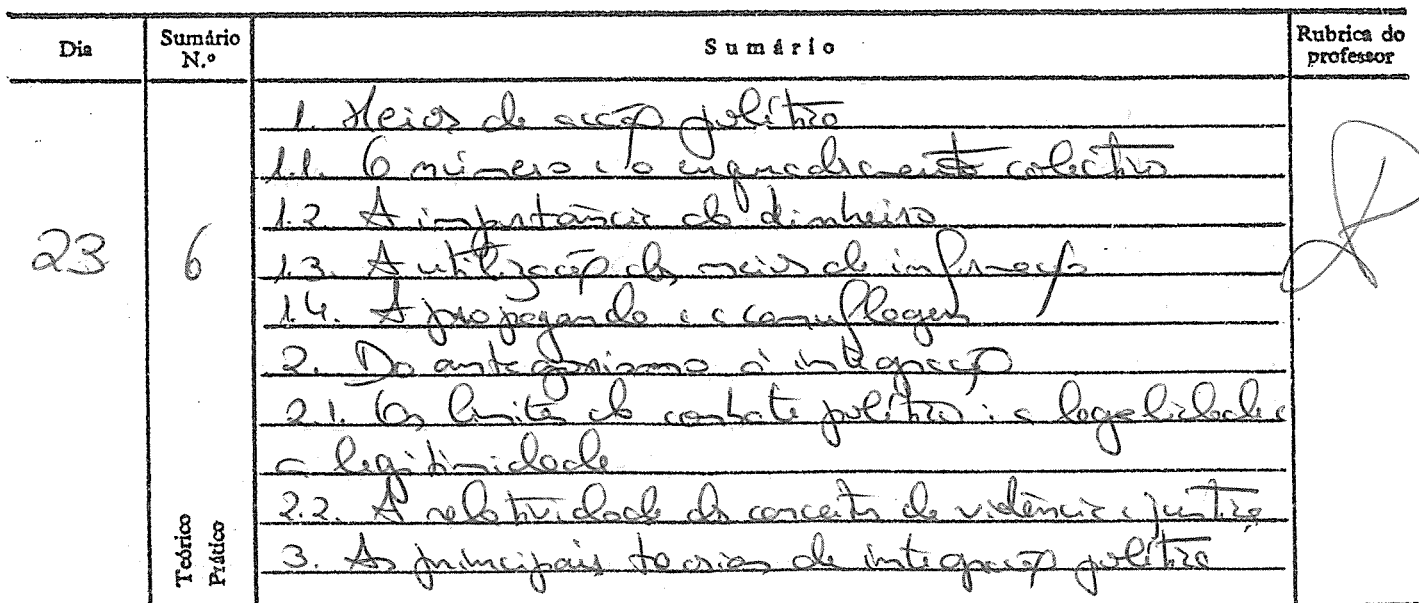 Dia
Sumário N.º
Sumário
Rubrica do professor
23
6
Teórico
Prático
1. Meios de acção política
1.1. O número e o enquadramento colectivo
1.2. A importância do dinheiro
1.3. A utilização dos meios de informação
1.4. A propaganda e a camuflagem
2. Do antagonismo à integração
2.1. Os limites do combate político: a legalidade e
a legitimidade
2.2. A relatividade do conceito de violência e justiça
3. As principais teorias de integração política